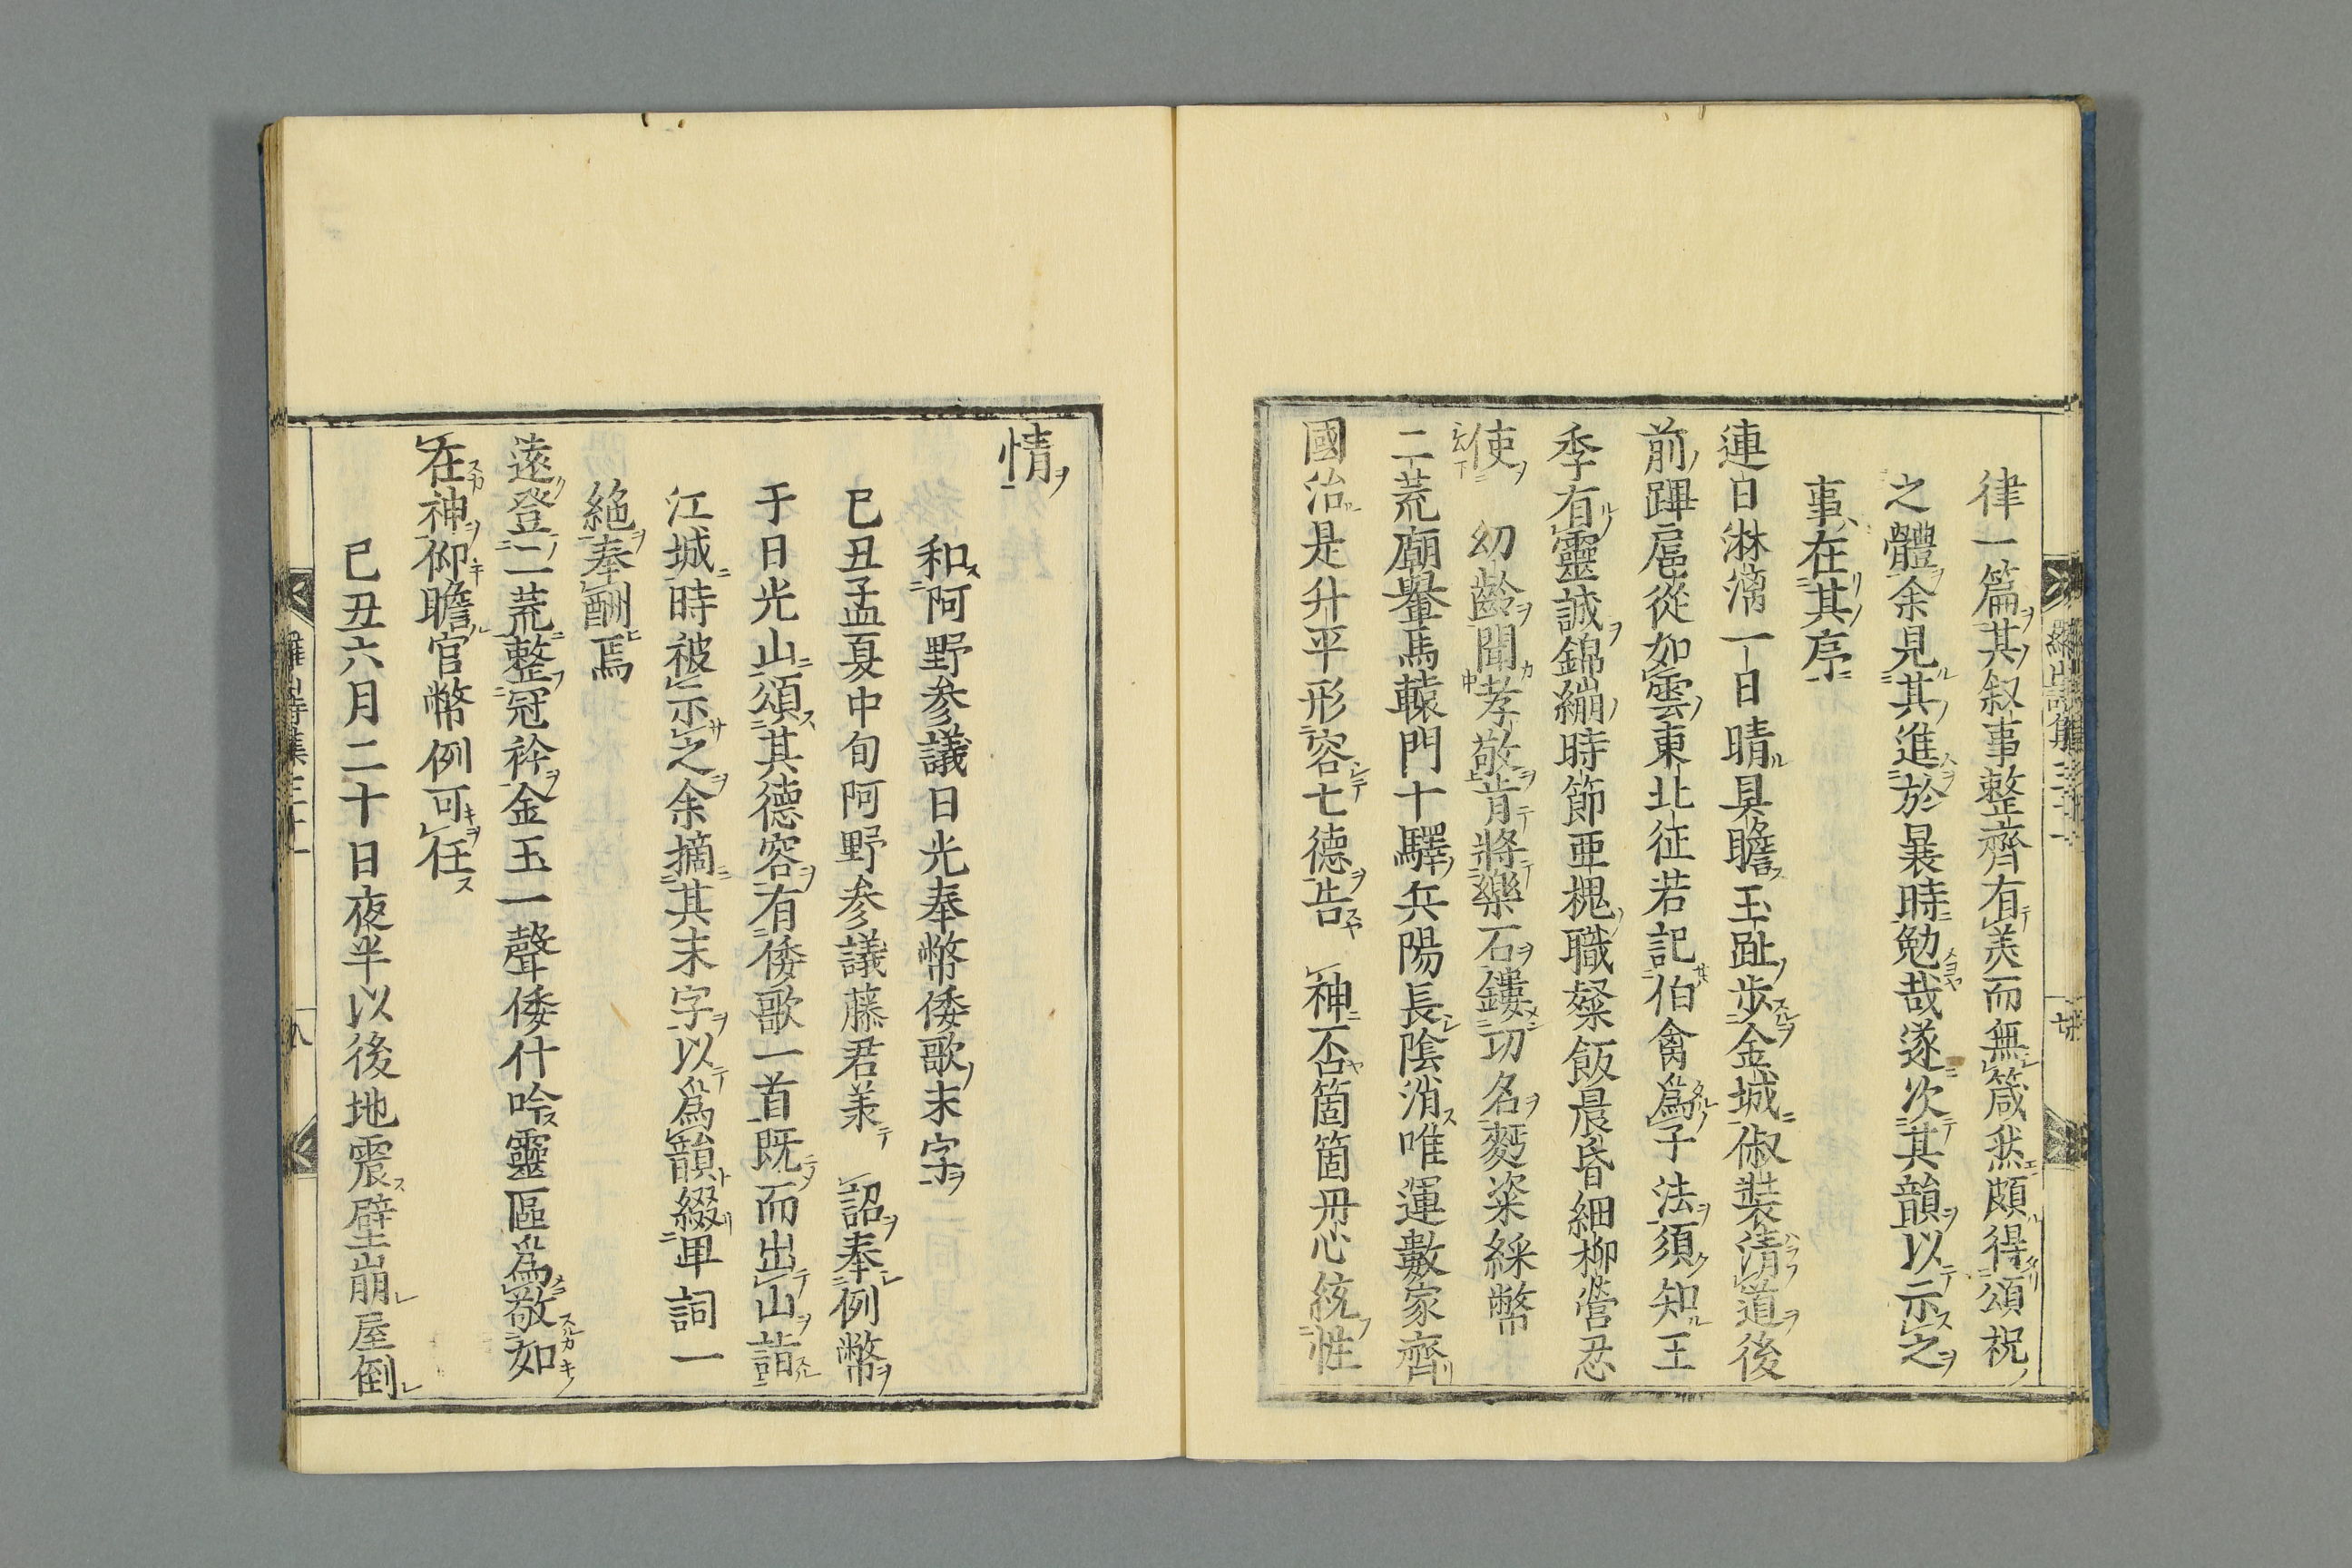 律一篇其叙事整齊有美而無箴然頗得頌祝
之體余見其進於曩時勉哉遂次其韻以示之
事在其序
連日淋漓一日晴具瞻玉趾歩金城俶装清道後
前蹕扈從如雲東北征若記伯禽爲子法須知王
季有靈誠錦繃時節亜槐職粲飯晨昏細柳營忍
使 幼齡聞孝敬肯將藥石鏤功名麪粢綵幣
二荒廟轝馬轅門十驛兵陽長陰消唯運數家齊
國治是升平形容七德告 神否箇箇丹心統性
情
和阿野参議日光奉幣倭歌末字
己丑孟夏中旬阿野参議藤君羕 詔奉例幣
于日光山頌其德容有倭歌一首既而出山詣
江城時被示之余摘其末字以爲韻綴卑詞一
絶奉酬焉
遠登二荒整冠衿金玉一聲倭什吟靈區爲敬如
在神仰瞻官幣例可任
己丑六月二十日夜半以後地震壁崩屋倒
羅山詩集三十一
八